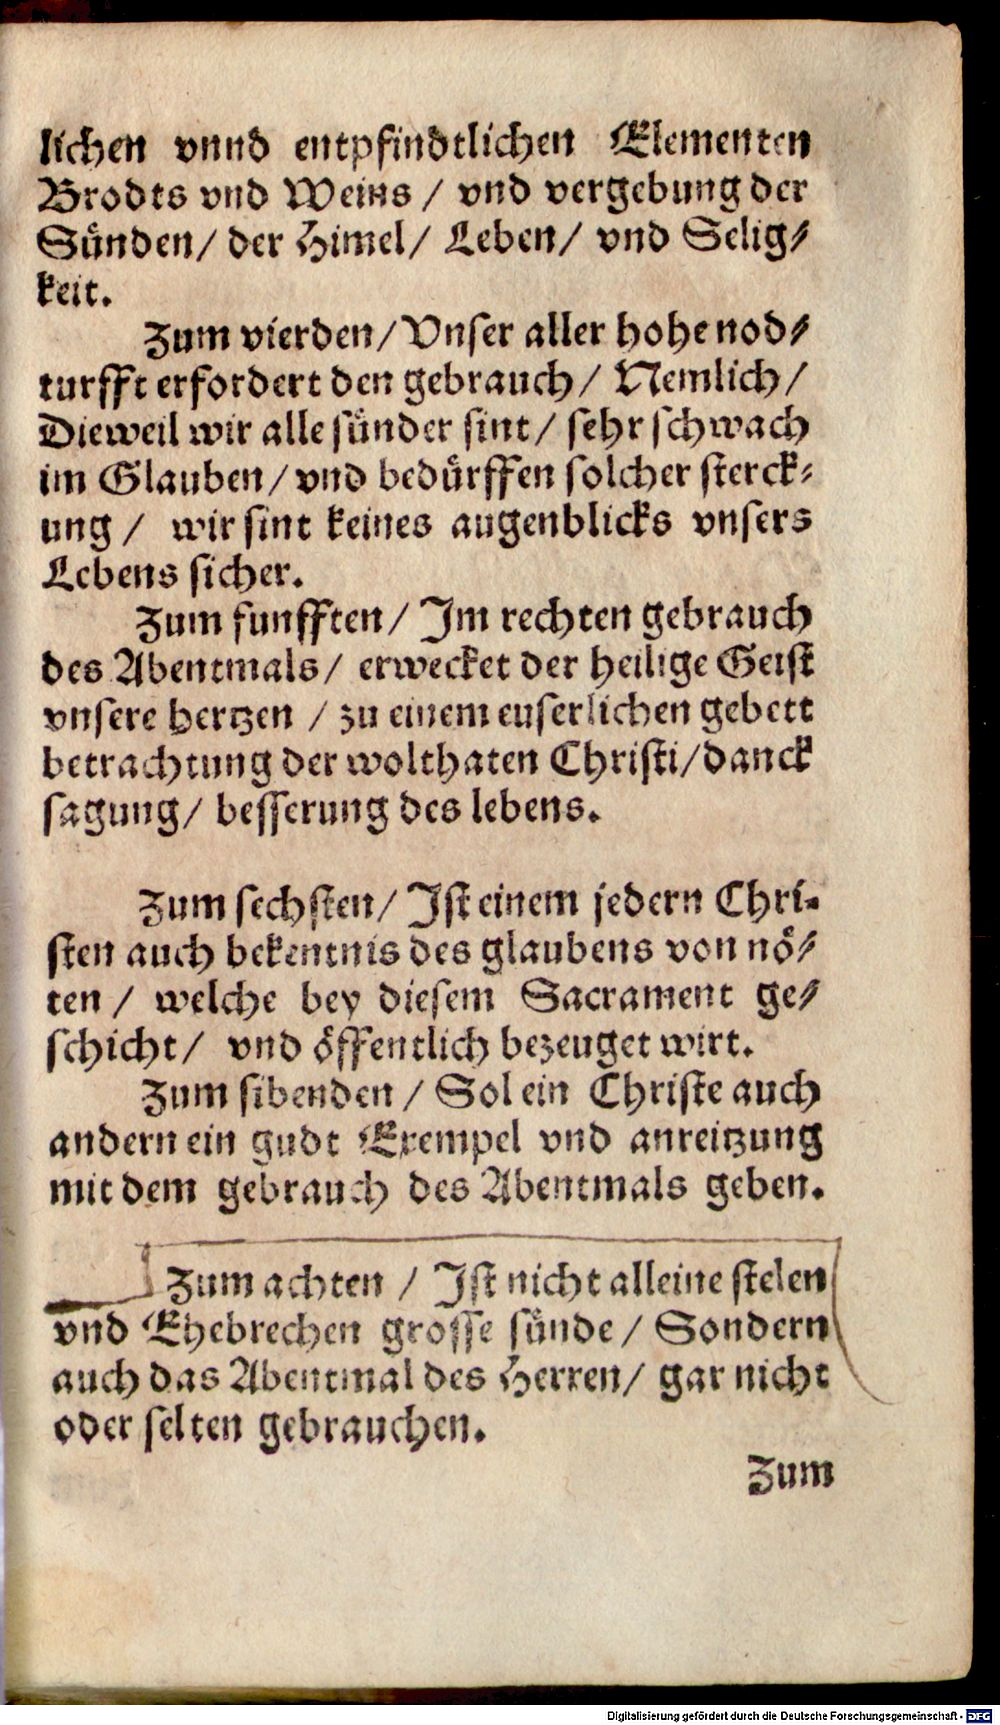 lichen vnnd entpfindtlichen Elementen
Brodts vnd Weins / vnd vergebung der
Sünden / der Himel / Leben / vnd Selig⸗
keit.
Zum vierden / Vnser aller hohe nod⸗
turfft erfordert den gebrauch / Nemlich /
Dieweil wir alle sünder sint / sehr schwach
im Glauben / vnd bedürffen solcher sterck⸗
ung / wir sint keines augenblicks vnsers
Lebens sicher.
Zum funfften / Im rechten gebrauch
des Abentmals / erwecket der heilige Geist
vnsere hertzen / zu einem euserlichen gebett
betrachtung der wolthaten Christi / danck
sagung / besserung des lebens.
Zum sechsten / Ist einem jedern Chri⸗
sten auch bekentnis des glaubens von nö⸗
ten / welche bey diesem Sacrament ge⸗
schicht / vnd öffentlich bezeuget wirt.
Zum sibenden / Sol ein Christe auch
andern ein gudt Exempel vnd anreitzung
mit dem gebrauch des Abentmals geben.
Zum achten / Ist nicht alleine stelen
vnd Ehebrechen grosse sünde / Sondern
auch das Abentmal des Herren / gar nicht
oder selten gebrauchen.
Zum
Digitalisierung gefördert durch die Deutsche Forschungsgemeinschaft - DFG